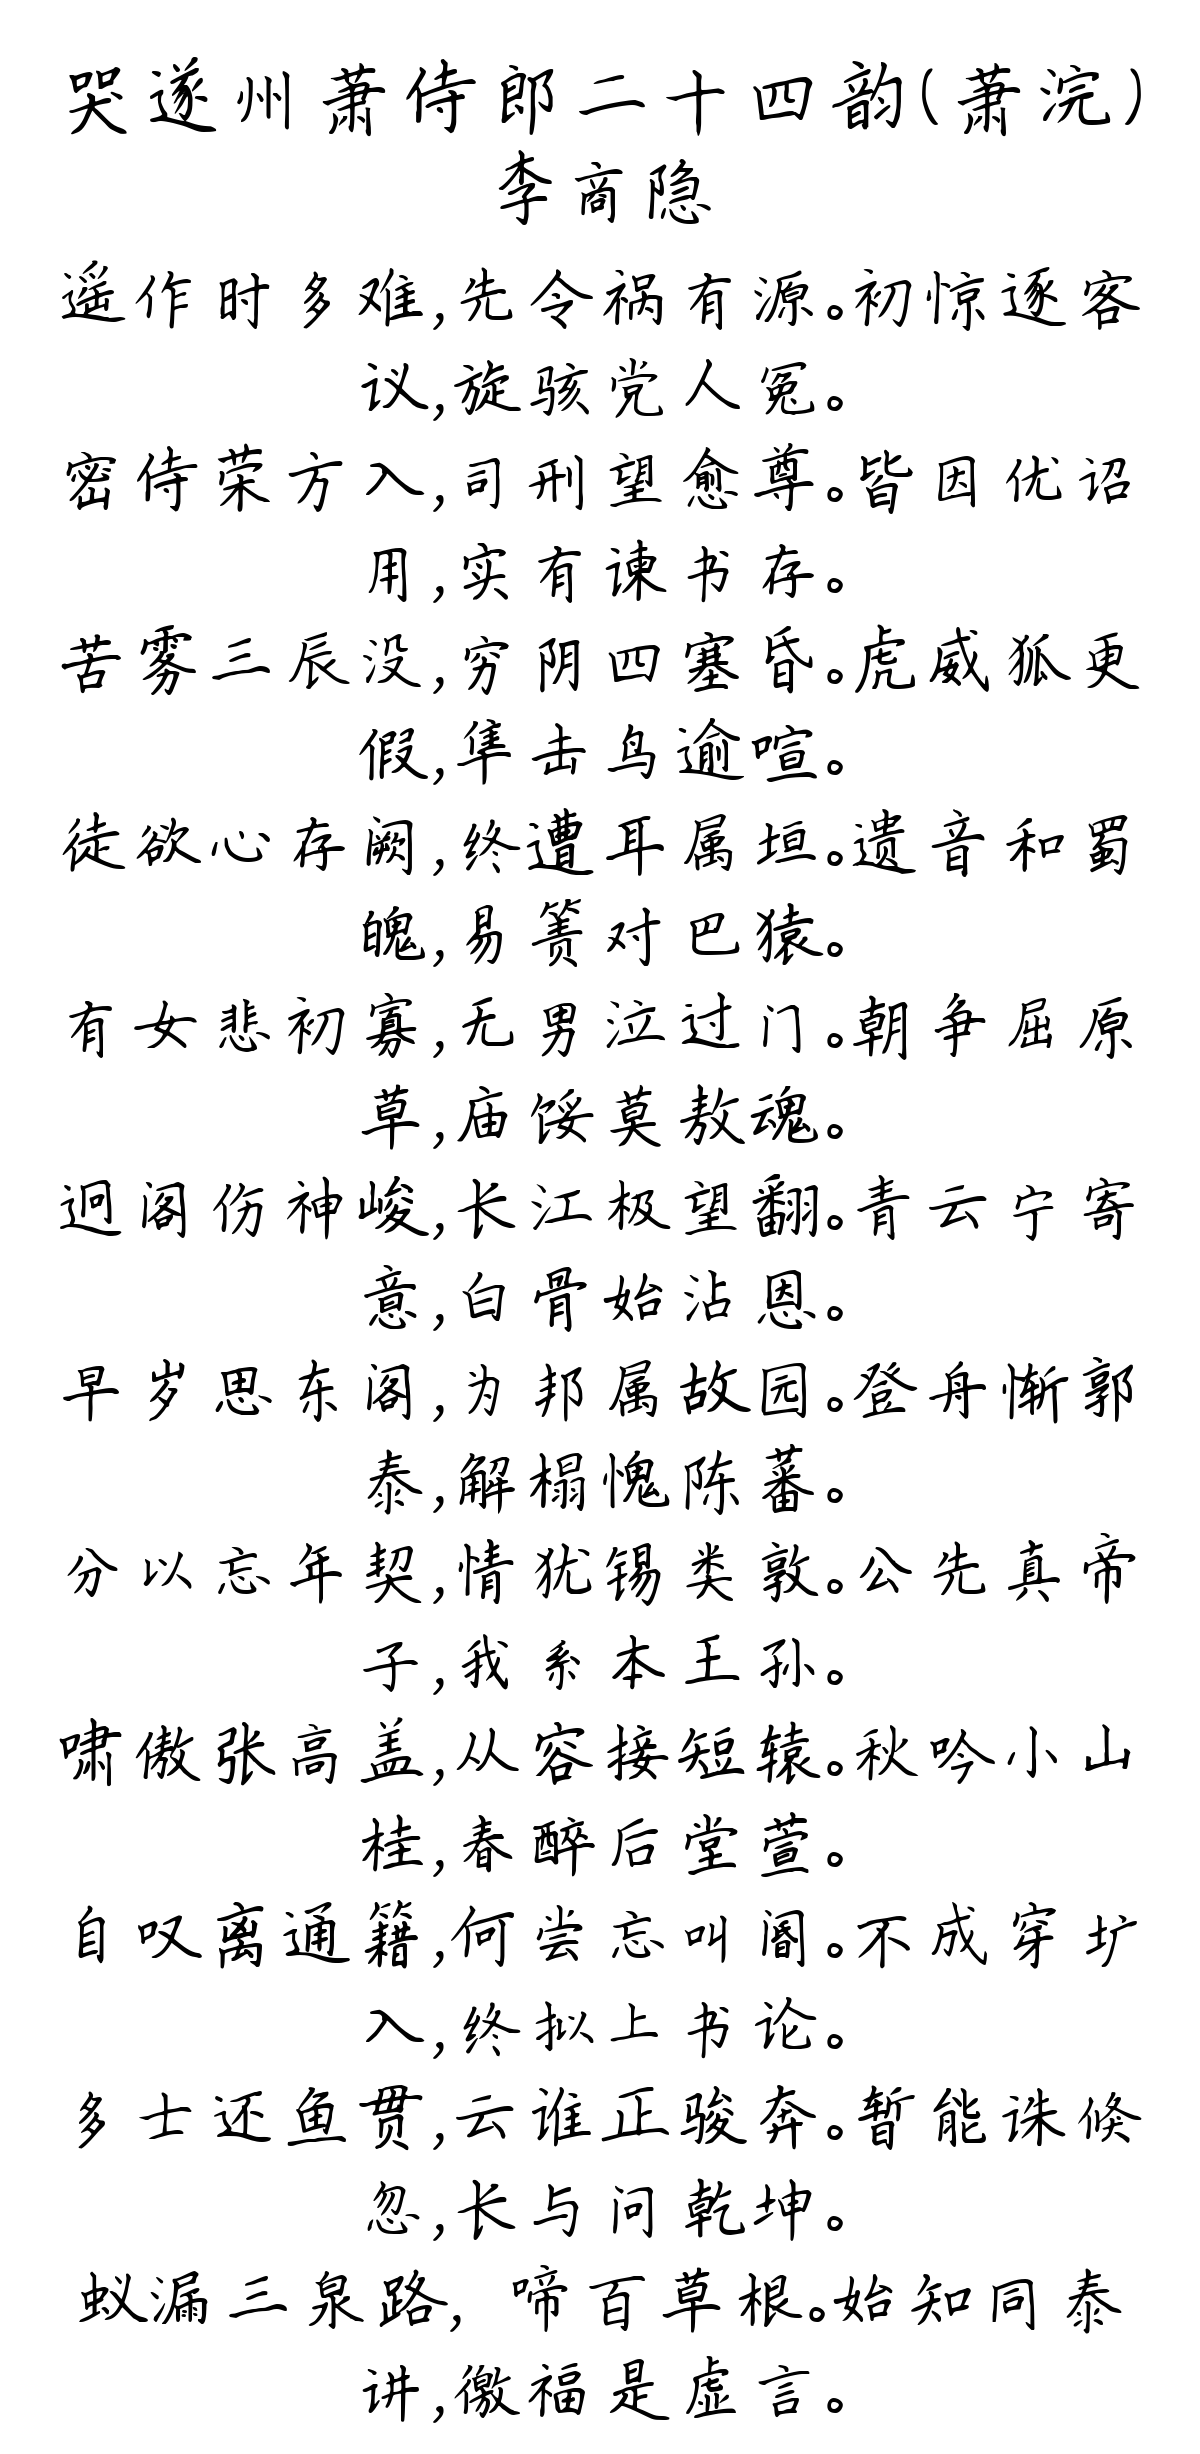 哭遂州萧侍郎二十四韵(萧浣)
李商隐
遥作时多难,先令祸有源。初惊逐客
议,旋骇党人冤。
密侍荣方入,司刑望愈尊。皆因优诏
用,实有谏书存。
苦雾三辰没,穷阴四塞昏。虎威狐更
假,隼击鸟逾喧。
徒欲心存阙,终遭耳属垣。遗音和蜀
魄,易箦对巴猿。
有女悲初寡,无男泣过门。朝争屈原
草,庙馁莫敖魂。
迥阁伤神峻,长江极望翻。青云宁寄
意,白骨始沾恩。
早岁思东阁,为邦属故园。登舟惭郭
泰,解榻愧陈蕃。
分以忘年契,情犹锡类敦。公先真帝
子,我系本王孙。
啸傲张高盖,从容接短辕。秋吟小山
桂,春醉后堂萱。
自叹离通籍,何尝忘叫阍。不成穿圹
入,终拟上书论。
多士还鱼贯,云谁正骏奔。暂能诛倏
忽,长与问乾坤。
蚁漏三泉路, 啼百草根。始知同泰
讲,徼福是虚言。